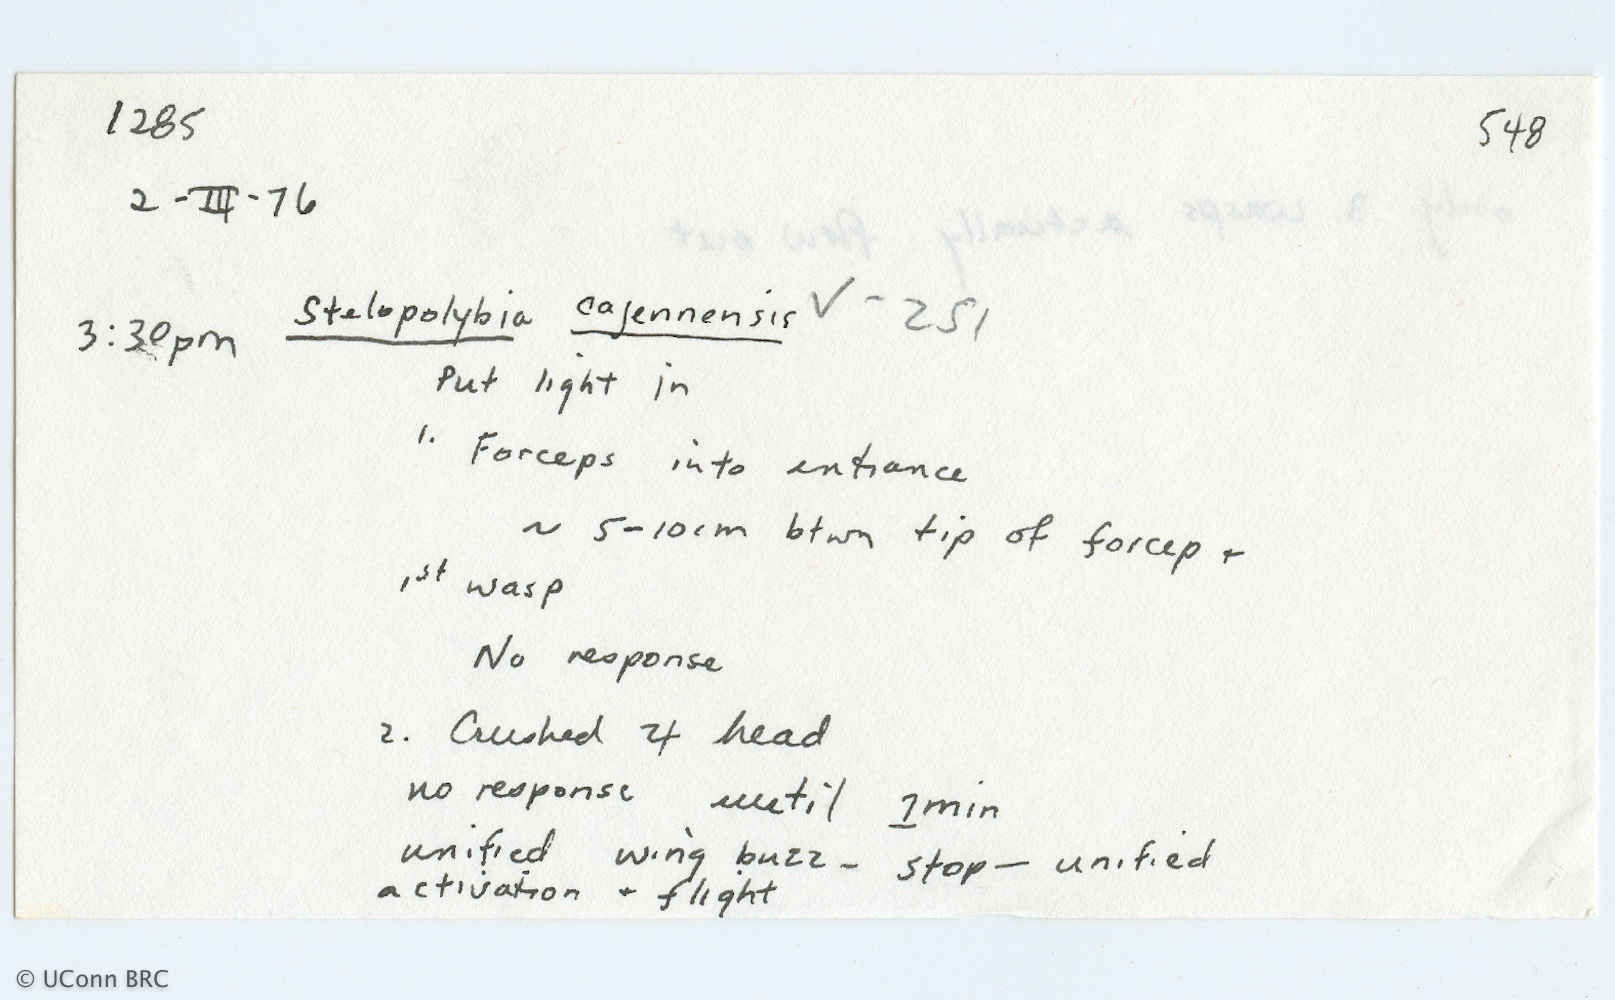 1285 548
2-III-76
only 3 wasps actually flew out
3:30pm Stelopolybia cajennensis ✓-251
Put light in
1. Forceps into entrance
~ 5-10cm btwn tip of forcep +
1st wasp
No response
2. Crushed 4 head
no response until 1min
unified wing buzz - stop - unified
activation + flight
© UConn BRC